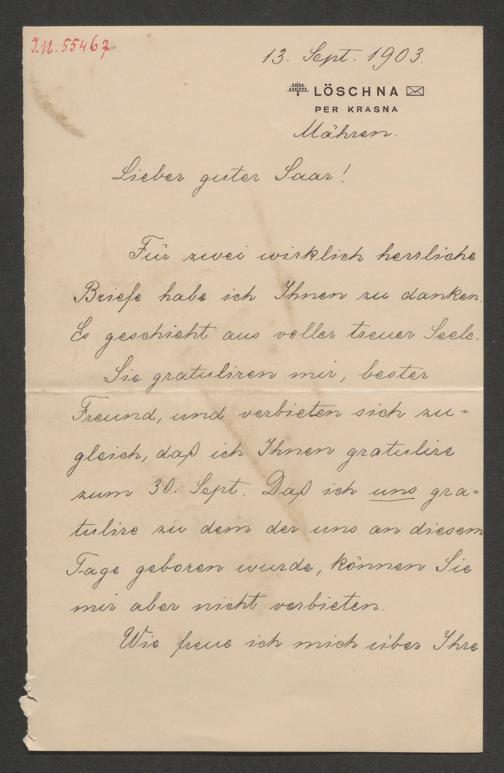 I.N. 55467
13. Sept. 1903.
LÖSCHNA
PER KRASNA
Mähren.
Lieber guter Saar!
Für zwei wirklich herrliche
Briefe habe ich Ihnen zu danken.
Es geschieht aus voller treuer Seele.
Sie gratuliren mir, bester
Freund, und verbieten sich zu=
gleich, daß ich Ihnen gratulire
zum 30. Sept. Daß ich uns gra=
tulire zu dem der uns an diesem
Tage geboren wurde, können Sie
mir aber nicht verbieten.
Wie freue ich mich über Ihre